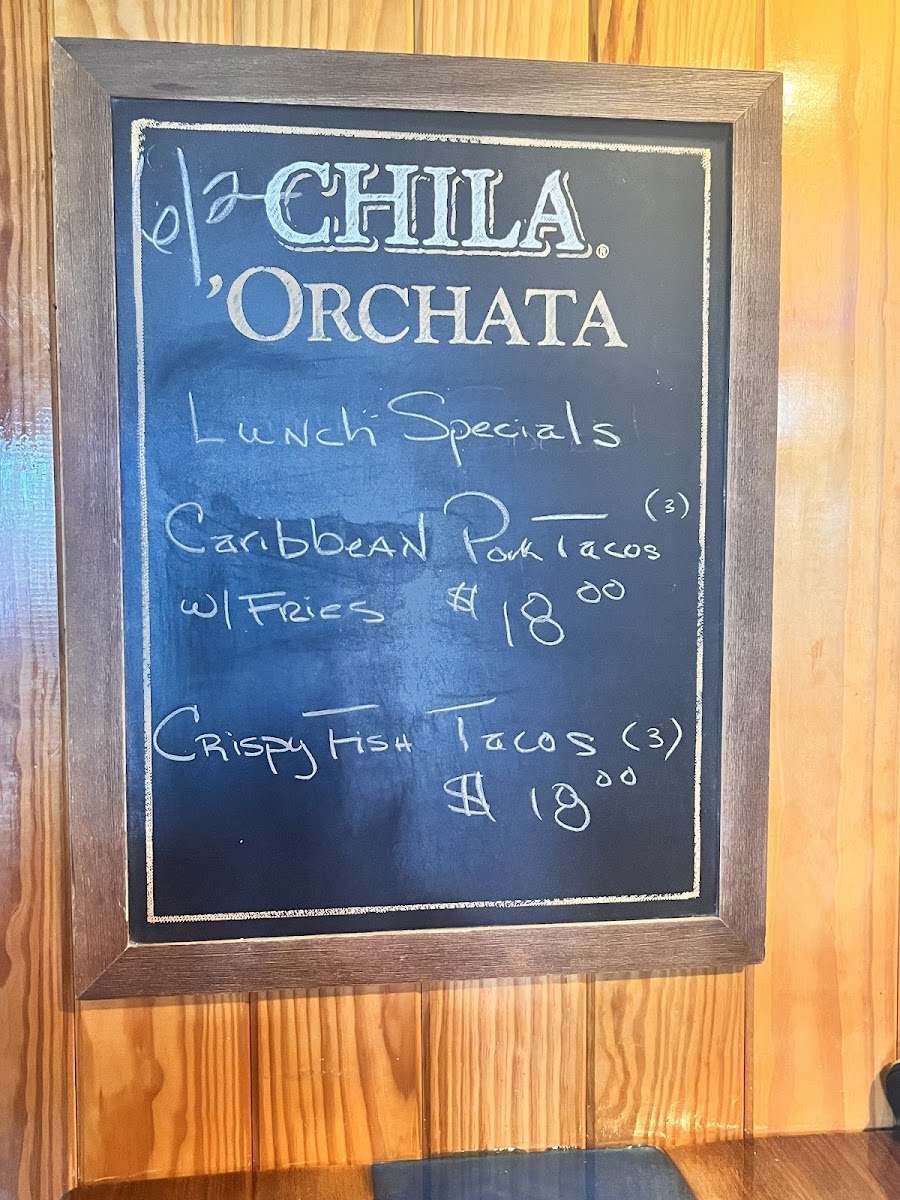 6/2
CHILA®
'ORCHATA
Lunch Specials
Caribbean Pork Tacos (3)
w/ Fries $18.00
Crispy Fish Tacos (3)
$18.00